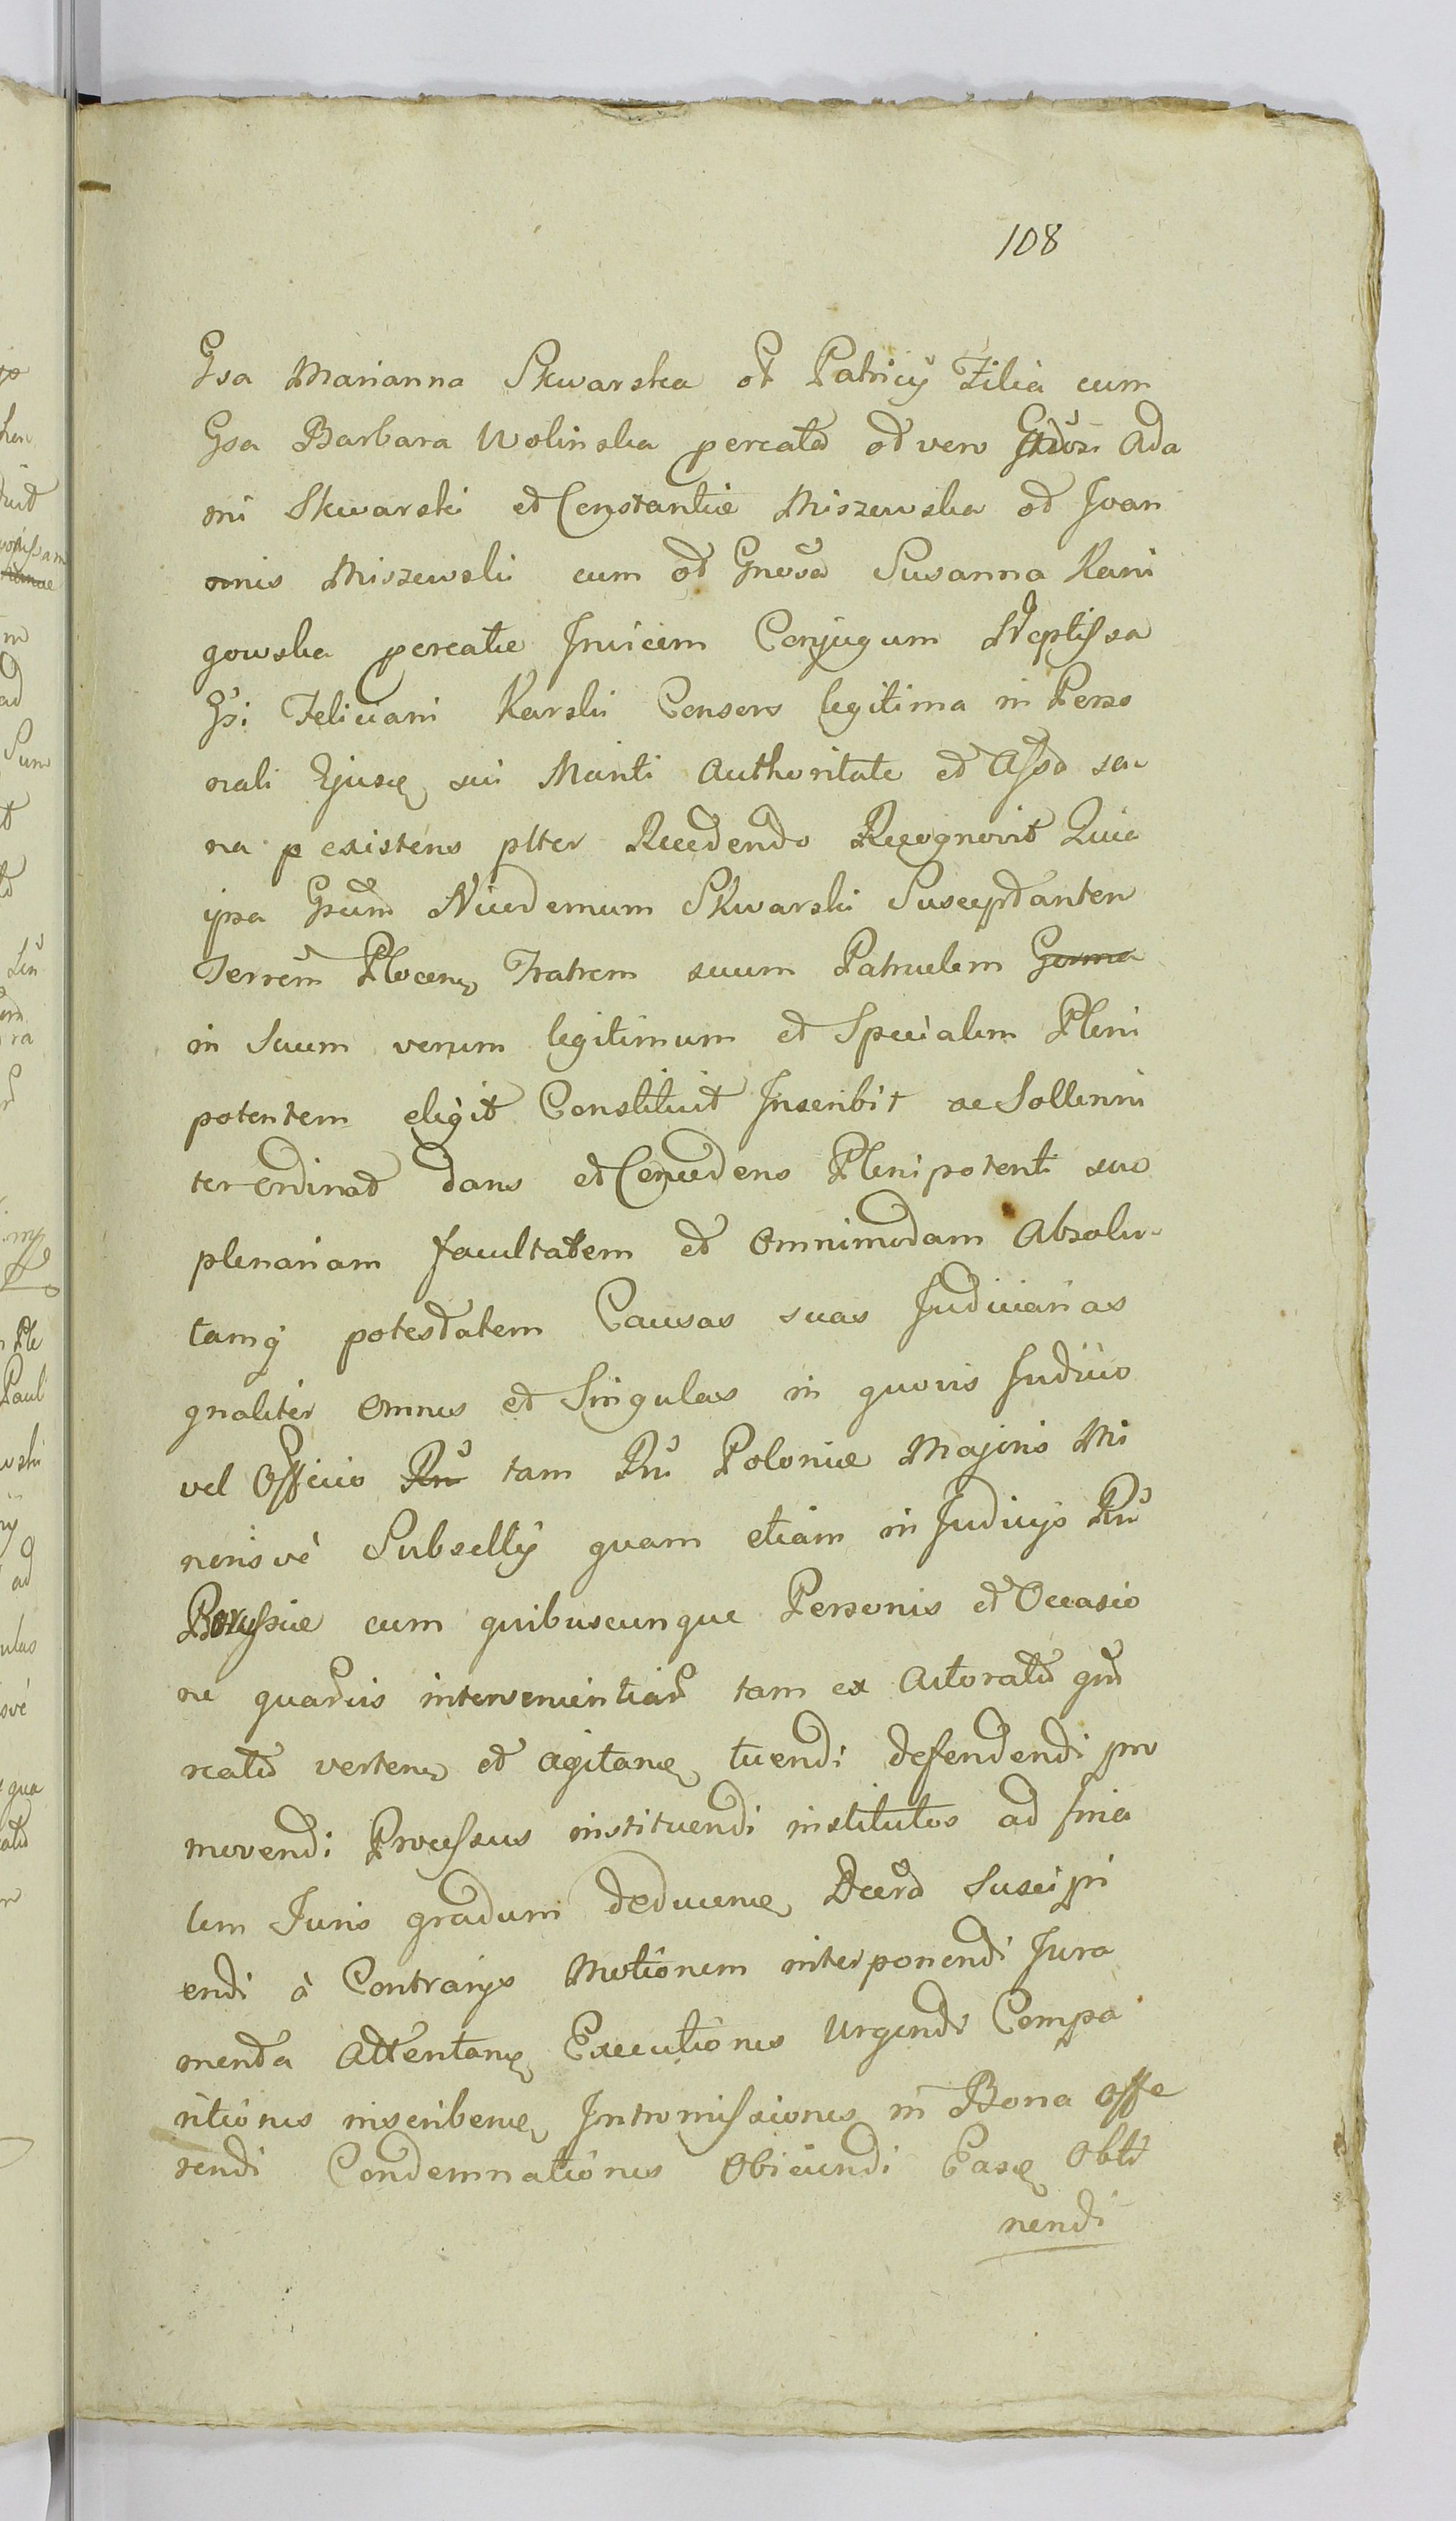 108
Gsa Marianna Skwarska oł Patricij Filia cum
Gsa Barbara Wolinska percata oł vero Ada
mi Skwarski et Constantiæ Miszewska oł Ioan
nis Miszewski cum oł Gnosa Susanna Kani
gowska percatæ Invicem Conjugum Neptissa
Gsi Feliciani Karski Consors legitima in Perso
nali Ejusq sui Mariti Authoritate et Assa sa
na p existens plter Recedendo Recognovit Quia
ipsa Gsum Nicodemum Skwarski Susceptanten
Terrem Plocen Fratrem suum Patruelem
in Suum verum legitimum et Specialem Pleni
potentem eligit Constituit Inscribit ac Sollenni
ter ordinat dans et Concedens Plenipotenti suo
plenariam facultatem et omnimodam Absolu
tamq potestatem Causas suas Judiciarias
gnaliter omnes et Singulas in quovis Judicio
vel Officio Rni tam Rni Poloniæ Majoris Mi
norisvè Subsellij quam etiam in Judicijs Rni
Borussiæ cum quibuscunque Personis et Occasio
ne quarvis intervenientiar tam ex Actoratu qm
reatu verten et agitan tuendi defendendi pro
movendi Processus instituendi institutos ad fina
lem Juris gradum deducen Decrta Suscipi
endi à Contrarijs Motionem interponendi Jura
menta Attentan Executiones Urgendi Compa
ritiones inscriben Intromissiones in Bona offe
rendi Condemnationes Obiiciendi Easq Obti
nendi